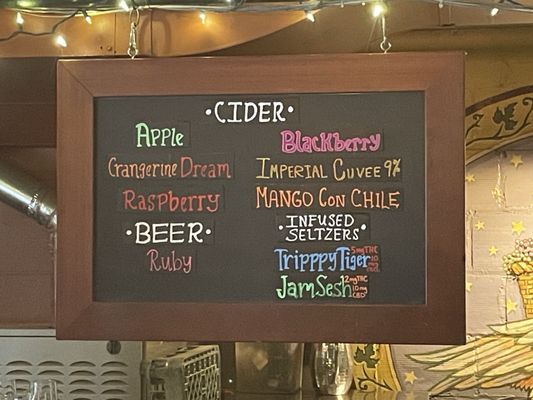 •CIDER•
Apple
Crangerine Dream
Raspberry
•BEER•
Ruby
Blackberry
IMPERIAL CUVEE 9%
MANGO CON CHILE
•INFUSED SELTZERS•
Tripppy Tiger 5mg THC 10mg
JamSesh 2mg THC 10mg CBD